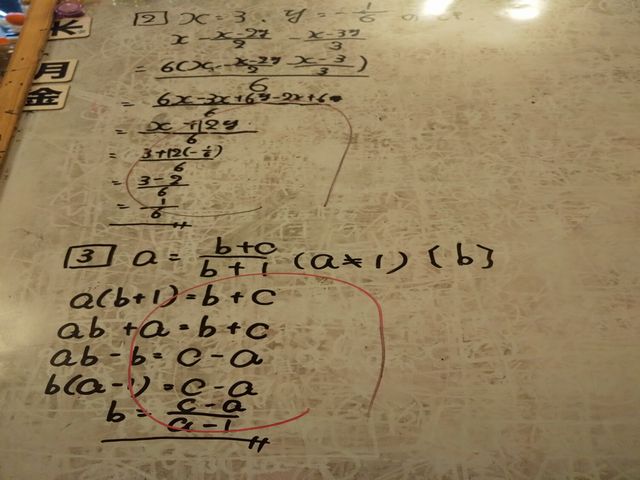 水
月
金
2 x=3, y=-1/6 のとき
x - (x-2y)/2 - (x-3y)/3
= 6(x - (x-2y)/2 - (x-3)/3)/6
= (6x-3x+6y-2x+6)/6
= (x+12y)/6
= (3+12(-1/6))/6
= (3-2)/6
= 1/6
3 a = (b+c)/(b+1) (a≠1) [b]
a(b+1)=b+c
ab+a=b+c
ab-b=c-a
b(a-1)=c-a
b=(c-a)/(a-1)